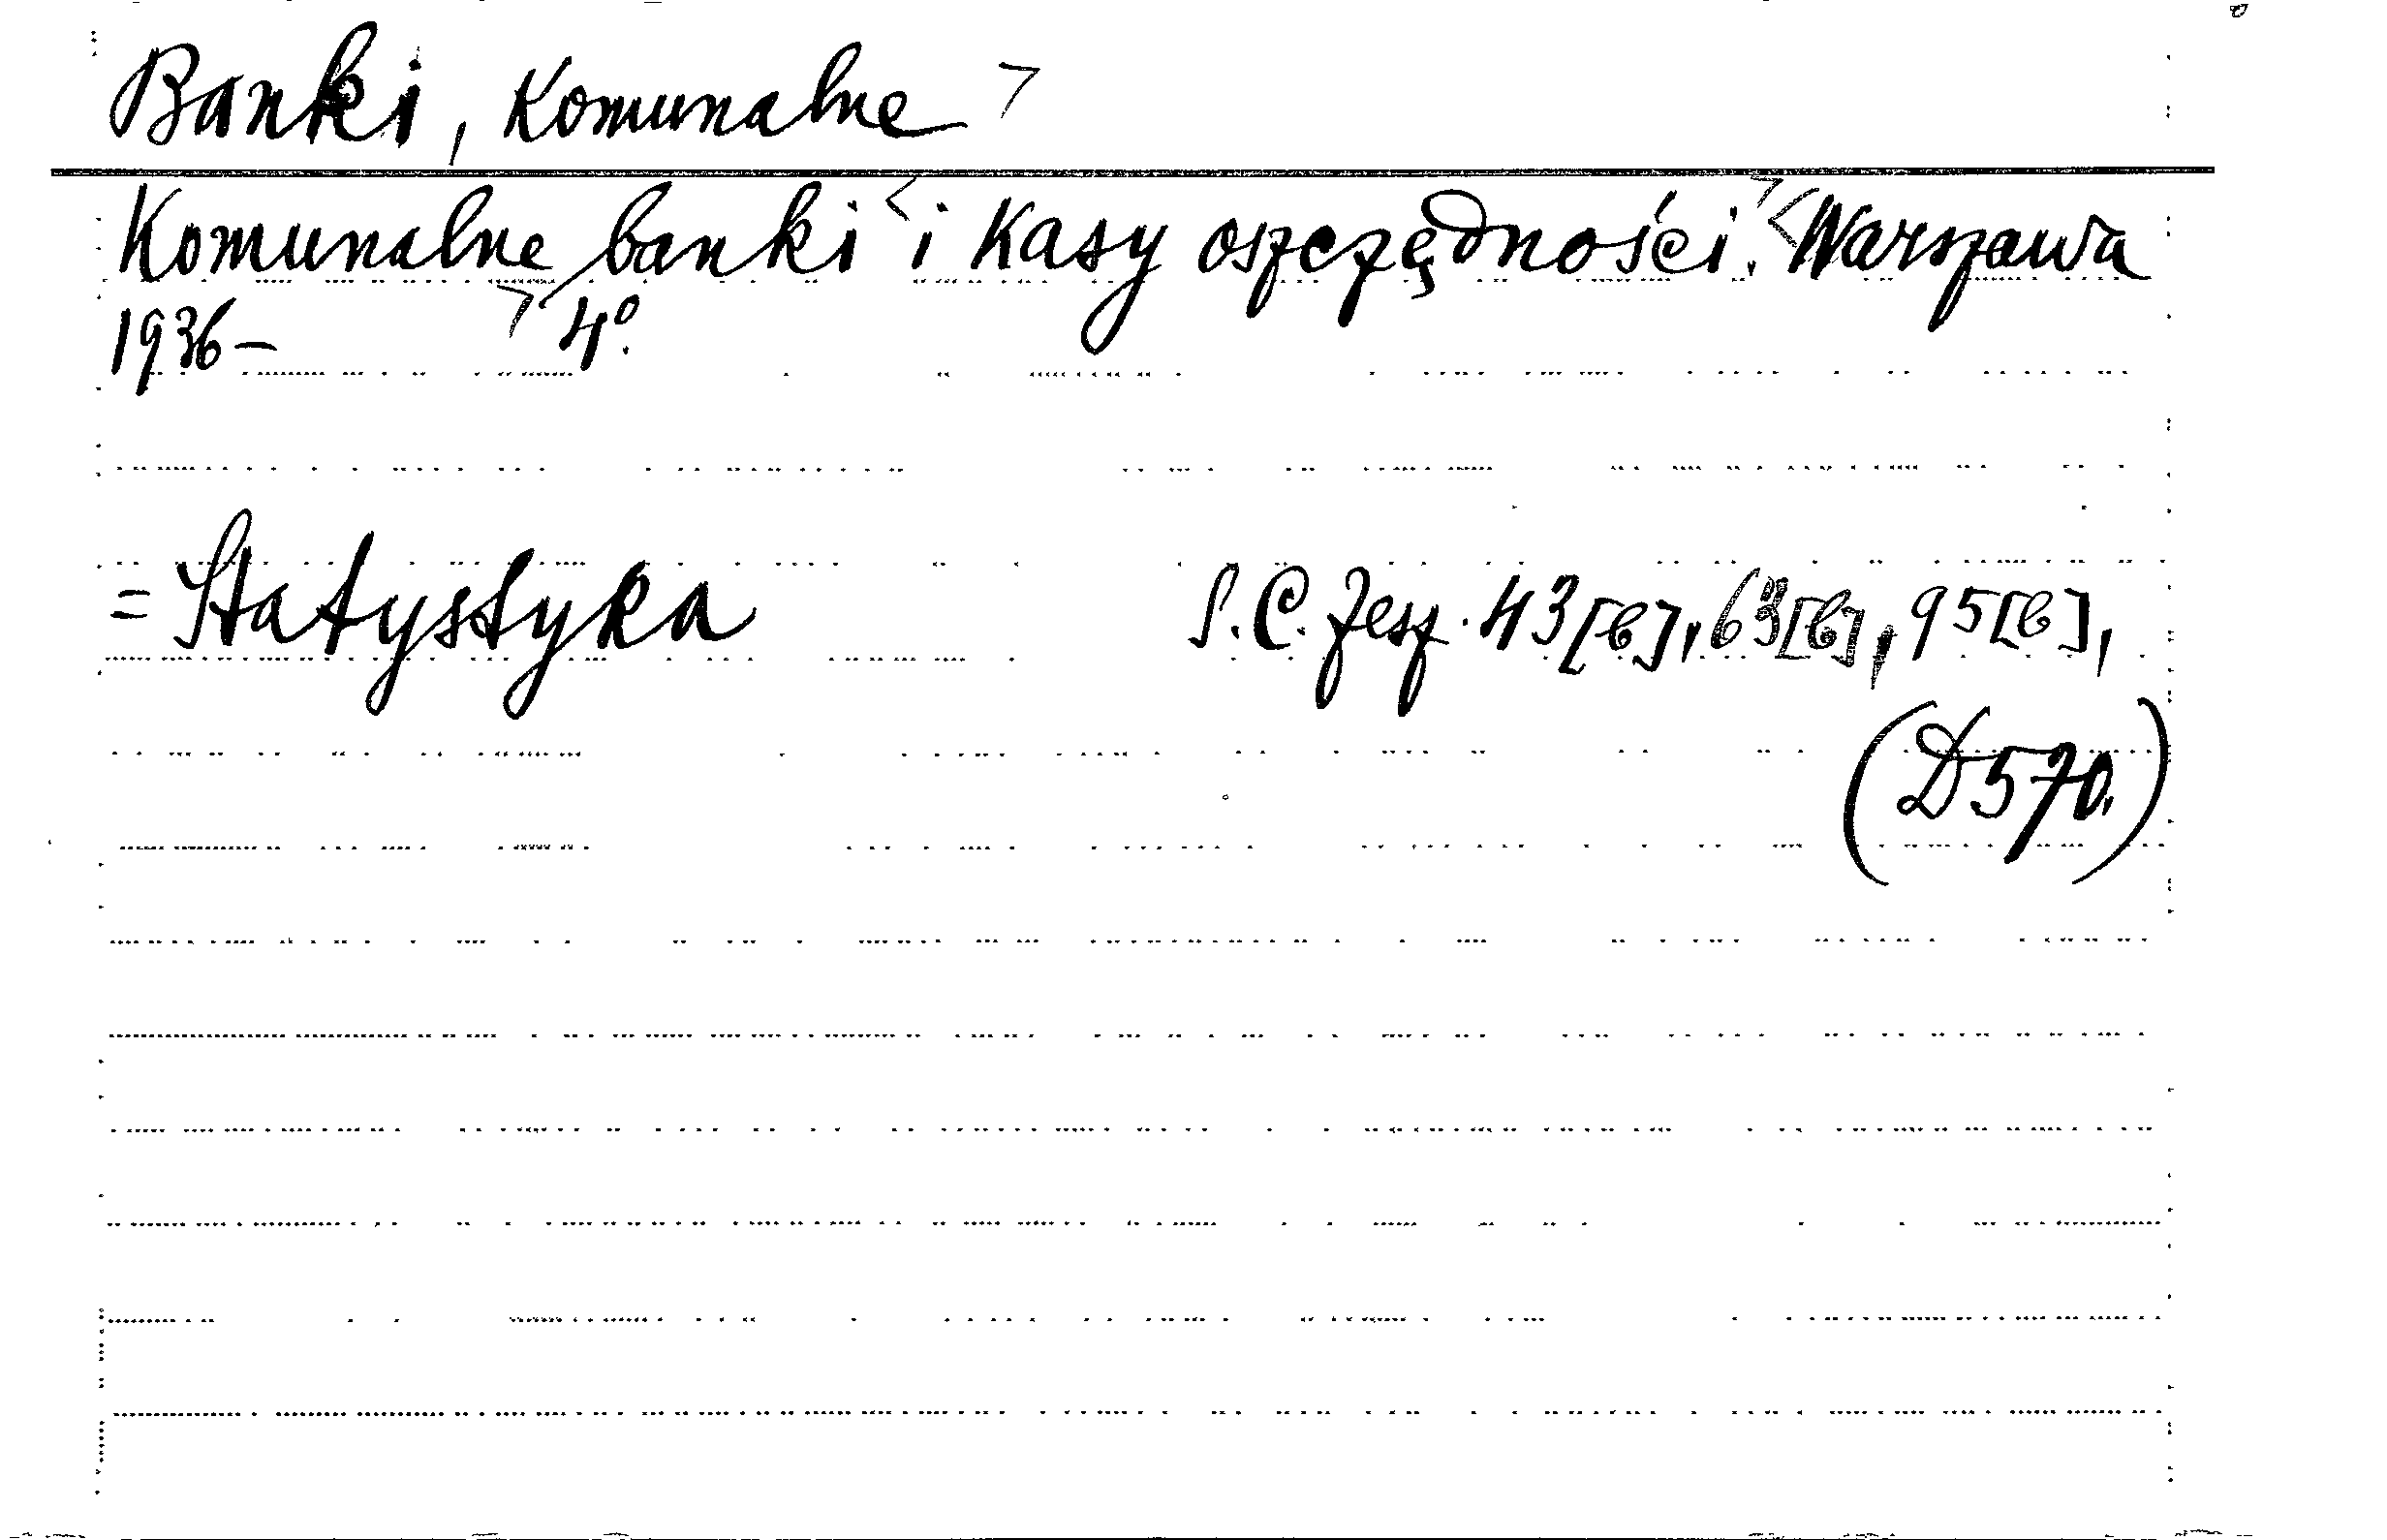 Banki, Komunalne >
Komunalne banki < i Kasy oszczędności. > < Warszawa
1936 – > 4º.
= Statystyka S.C. Zesz. 43[b], 63[b], 95[b],
(D570.)